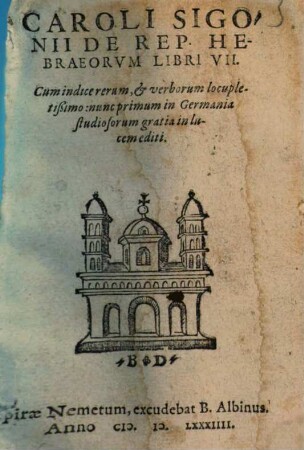 CAROLI SIGO-
NII DE REP. HE-
BRAEORVM LIBRI VII.
Cum indice rerum, & verborum locuple-
tissimo: nunc primum in Germania
studiosorum gratia in lu-
cem editi.
B D
piræ Nemetum, excudebat B. Albinus.
Anno CIↃ. IↃ. LXXXIIII.